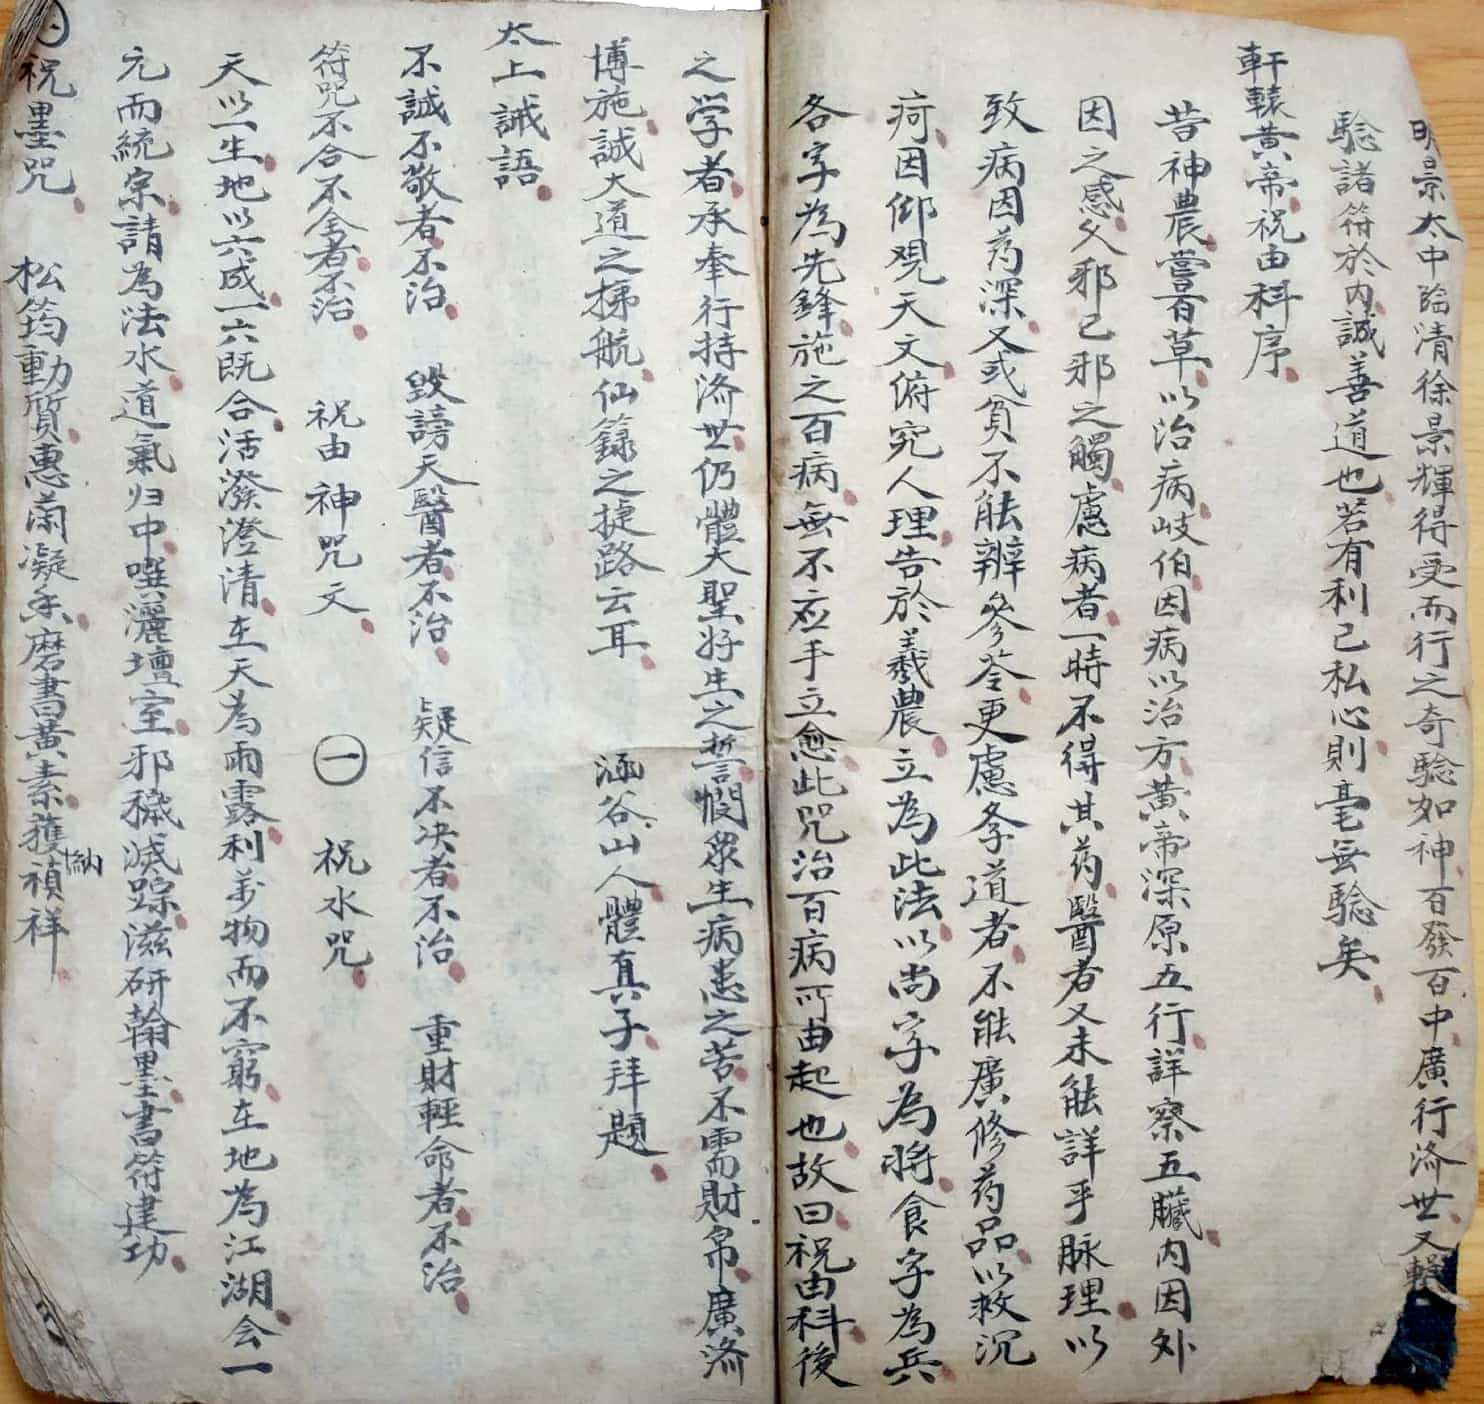 明景太中臨清徐景輝得受而行之奇驗如神百發百中廣行濟世又
驗諸符於內誠善道也若有利己私心則毫無驗矣
軒轅黃帝祝由科序
昔神農嘗百草以治病岐伯因病以治方黃帝深原五行詳察五臟內因外
因之感父邪己邪之觸慮病者一時不得其药醫者又未能詳乎脉理以
致病因药深又或貧不能辦參苓更慮李道者不能廣修药品以救沉
疴因仰覌天文俯究人理告於羲農立為此法以尚字為將食字為兵
各字為先鋒施之百病無不应手立愈此咒治百病所由起也故曰祝由科後
之学者承奉行持濟世仍體大聖好生之誓憫衆生病患之苦不需財帛廣濟
博施誠大道之梯航仙籙之捷路云耳 涵谷山人體真子拜題
太上誡語
不誠不敬者不治 毀謗天醫者不治 疑信不决者不治 重財輕命者不治
符咒不合不全者不治 祝由神咒文 ㊀ 祝水咒
天以一生地以六成一六既合活潑澄清在天為雨露利萬物而不窮在地為江湖会一
元而統宗請為法水道氣归中噀灑壇室邪穢滅踪滋研翰墨書符建功
祝墨咒 松筠動質蕙蘭凝香磨書黃素獲納禎祥